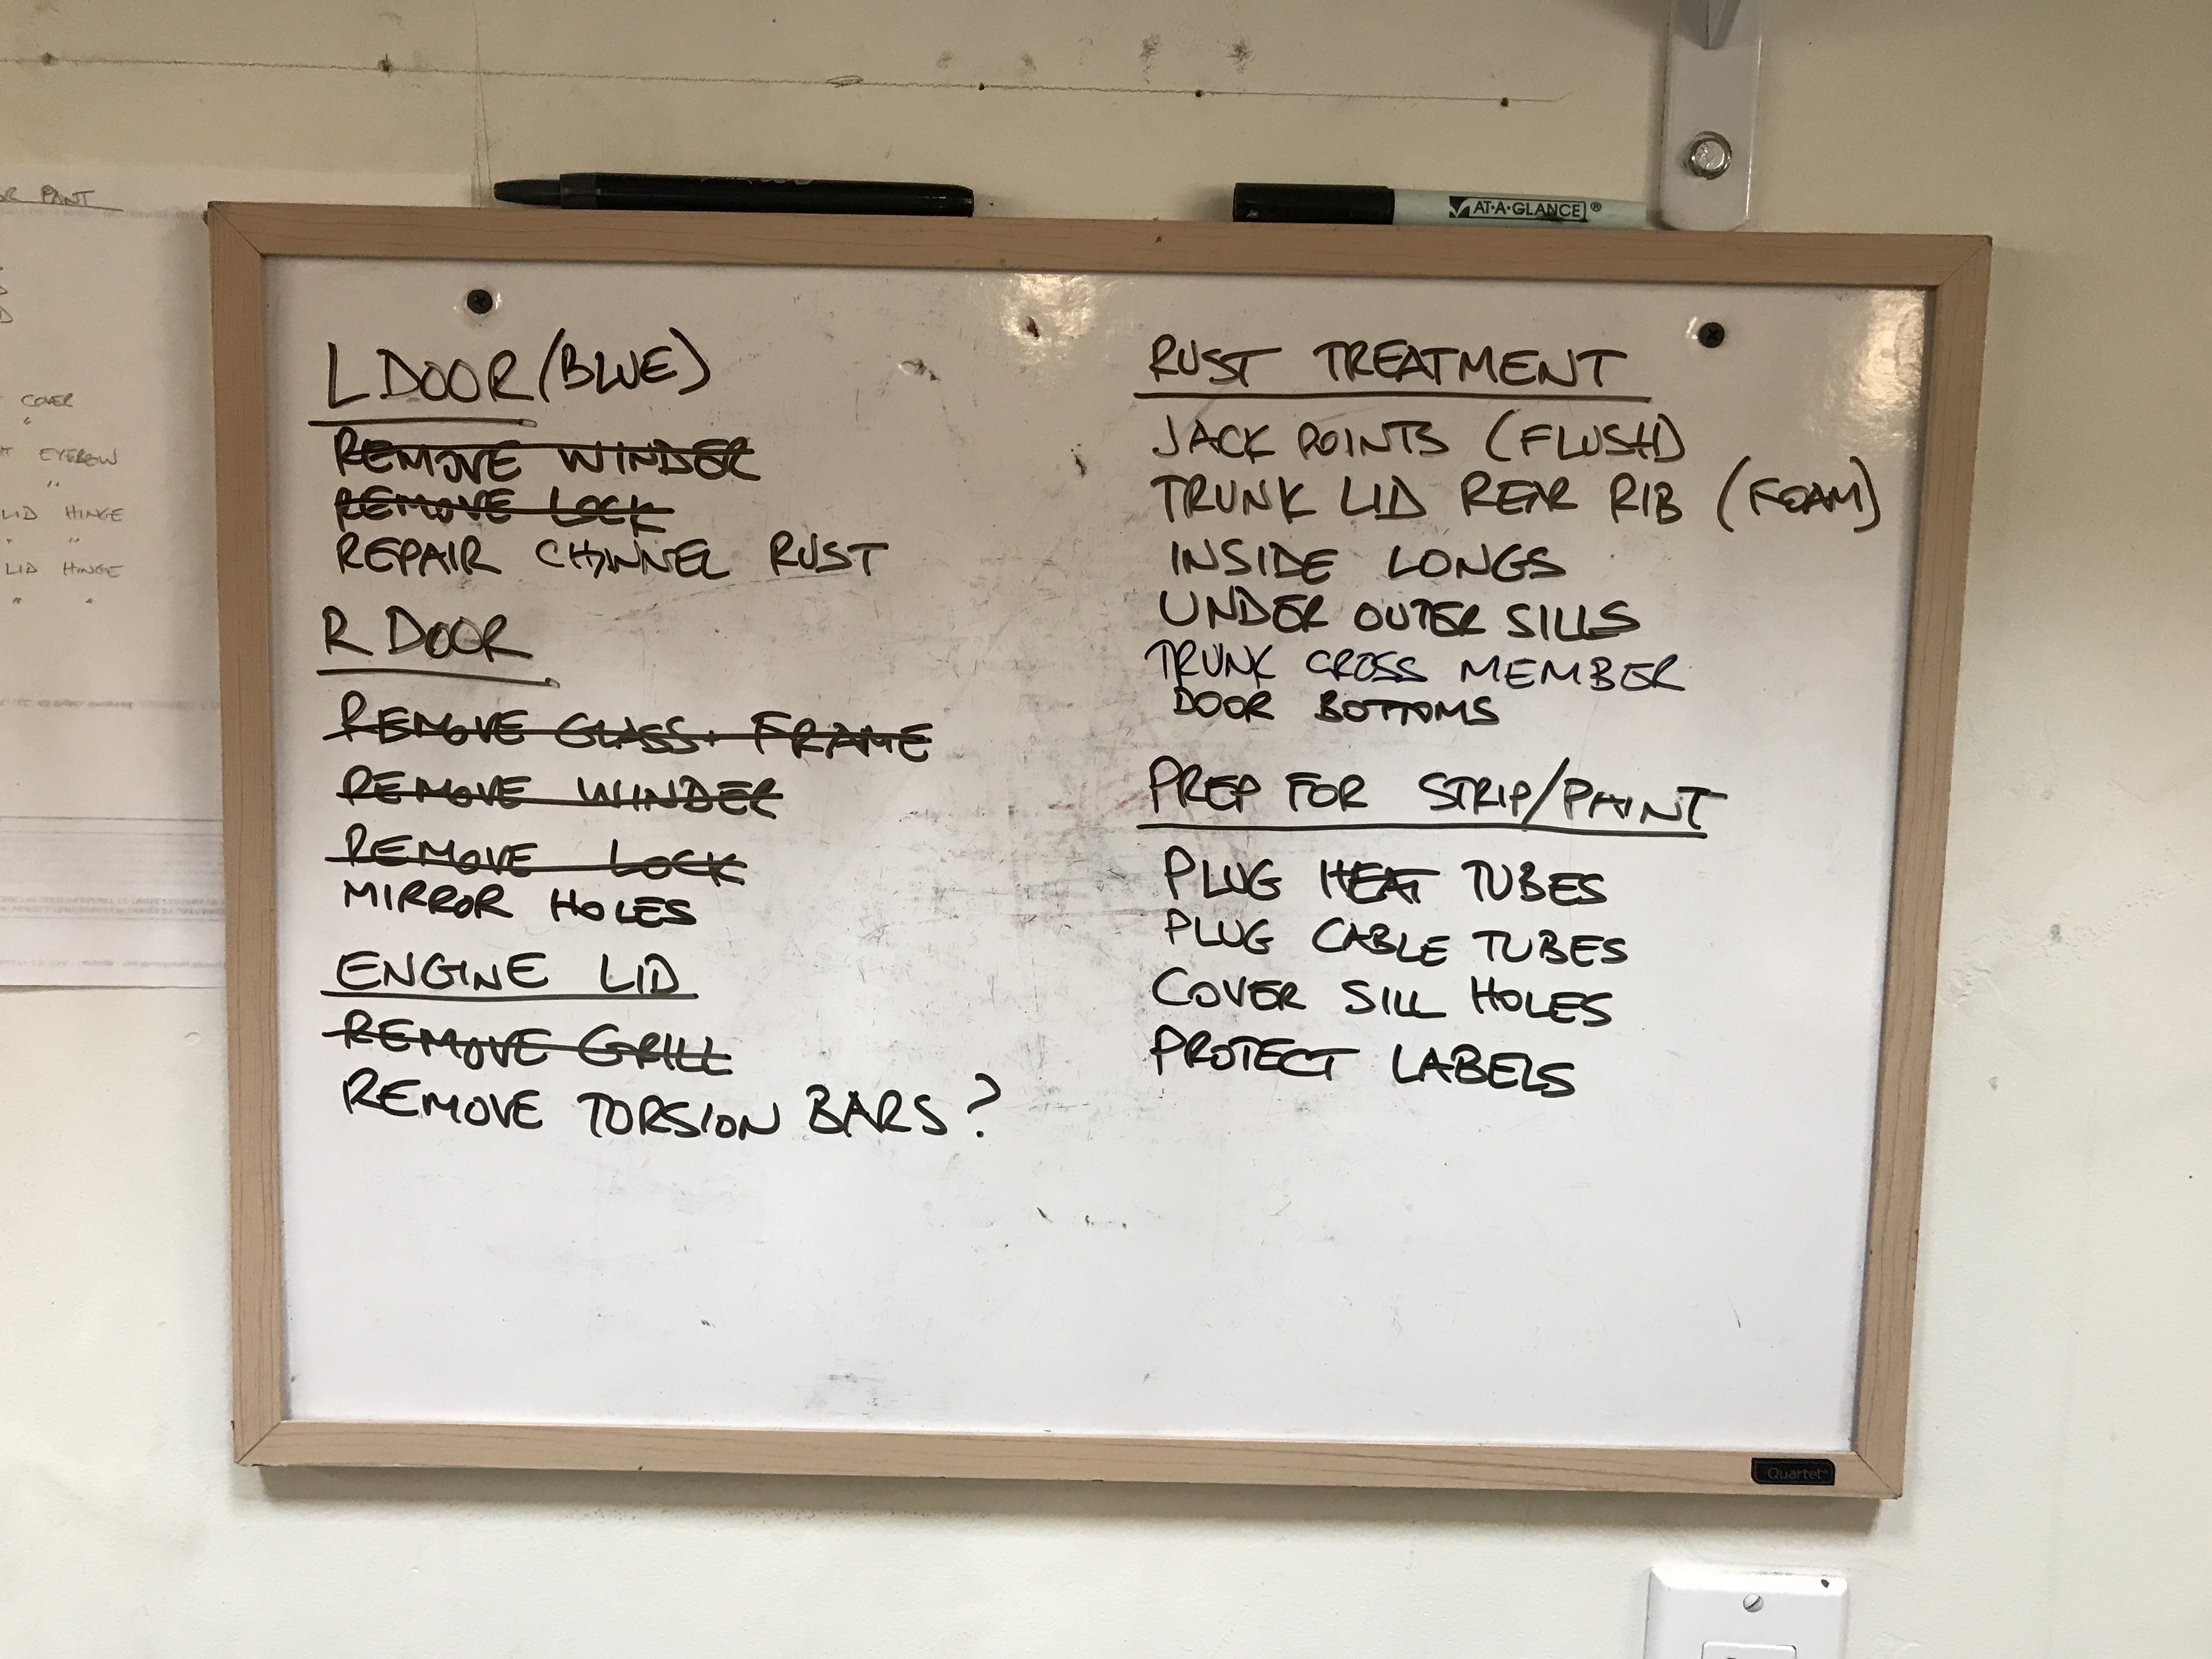 OR PAINT
COVER
"
EYEBROW
"
LID HINGE
" "
LID HINGE
" "
AT-A-GLANCE®
L DOOR (BLUE)
REMOVE WINDER
REMOVE LOCK
REPAIR CHANNEL RUST
R DOOR
REMOVE GLASS + FRAME
REMOVE WINDER
REMOVE LOCK
MIRROR HOLES
ENGINE LID
REMOVE GRILL
REMOVE TORSION BARS?
RUST TREATMENT
JACK POINTS (FLUSH)
TRUNK LID REAR RIB (FOAM)
INSIDE LONGS
UNDER OUTER SILLS
TRUNK CROSS MEMBER
DOOR BOTTOMS
PREP FOR STRIP/PAINT
PLUG HEAT TUBES
PLUG CABLE TUBES
COVER SILL HOLES
PROTECT LABELS
Quartet